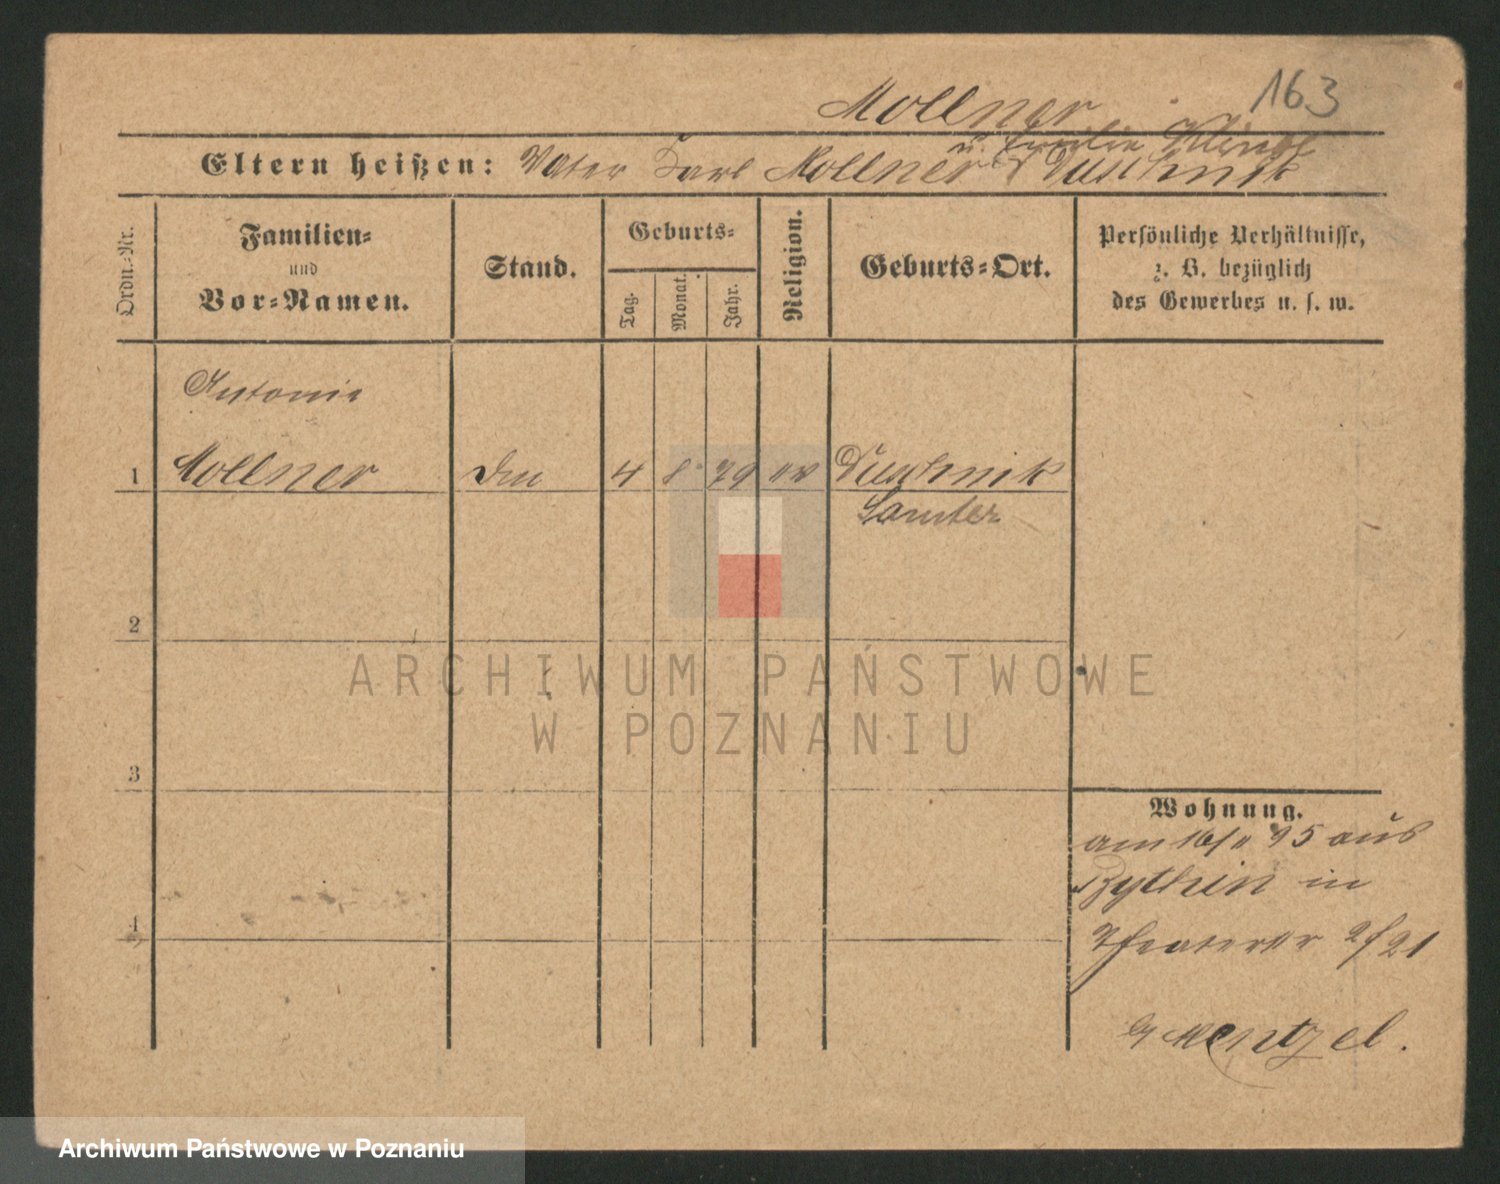 163
Mollner
u. Emilie
Eltern heißen: Vater Karl Mollner Duschnik
Ordn.-Nr.
Familien-
und
Vor-Namen.
Stand.
Geburts-
Tag.
Monat.
Jahr.
Religion.
Geburts-Ort.
Persönliche Verhältnisse,
z. B. bezüglich
des Gewerbes u. s. w.
Antonie
1 Mollner 4 8 79 Duschnik
Samter
2
3
4
Wohnung.
am 16/11 95 aus
Bythin in
Theaterstr 2/21
b/ Mentzel.
ARCHIWUM PAŃSTWOWE
W POZNANIU
Archiwum Państwowe w Poznaniu